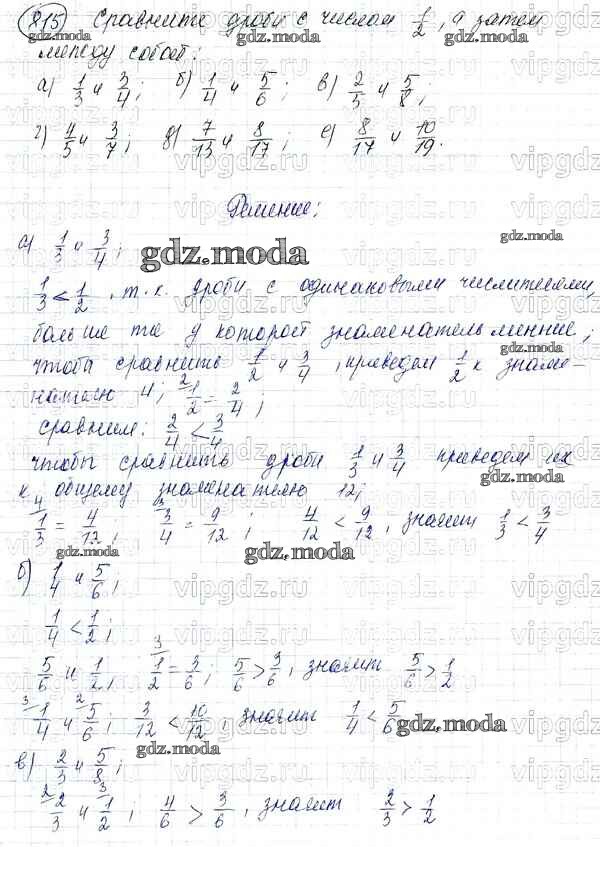 815 Сравните дроби с числом 1/2, а затем
между собой:
а) 1/3 и 3/4; б) 1/4 и 5/6; в) 2/5 и 5/8;
г) 4/5 и 3/7; д) 7/13 и 8/17; е) 8/17 и 10/19.
Решение:
а) 1/3 и 3/4;
1/3 < 1/2, т.к. дроби с одинаковыми числителями,
больше та у которой знаменатель меньше;
чтобы сравнить 1/2 и 3/4, приведем 1/2 к знаме-
нателю 4; 1/2 = 2/4;
сравним: 2/4 < 3/4
чтобы сравнить дроби 1/3 и 3/4 приведем их
к общему знаменателю 12;
1/3 = 4/12; 3/4 = 9/12; 4/12 < 9/12, значит 1/3 < 3/4
б) 1/4 и 5/6;
1/4 < 1/2;
5/6 и 1/2, 1/2 = 3/6; 5/6 > 3/6, значит 5/6 > 1/2
1/4 и 5/6; 3/12 < 10/12, значит 1/4 < 5/6
в) 2/3 и 5/8;
2/3 и 1/2; 4/6 > 3/6, значит 2/3 > 1/2
gdz.moda
vipgdz.ru